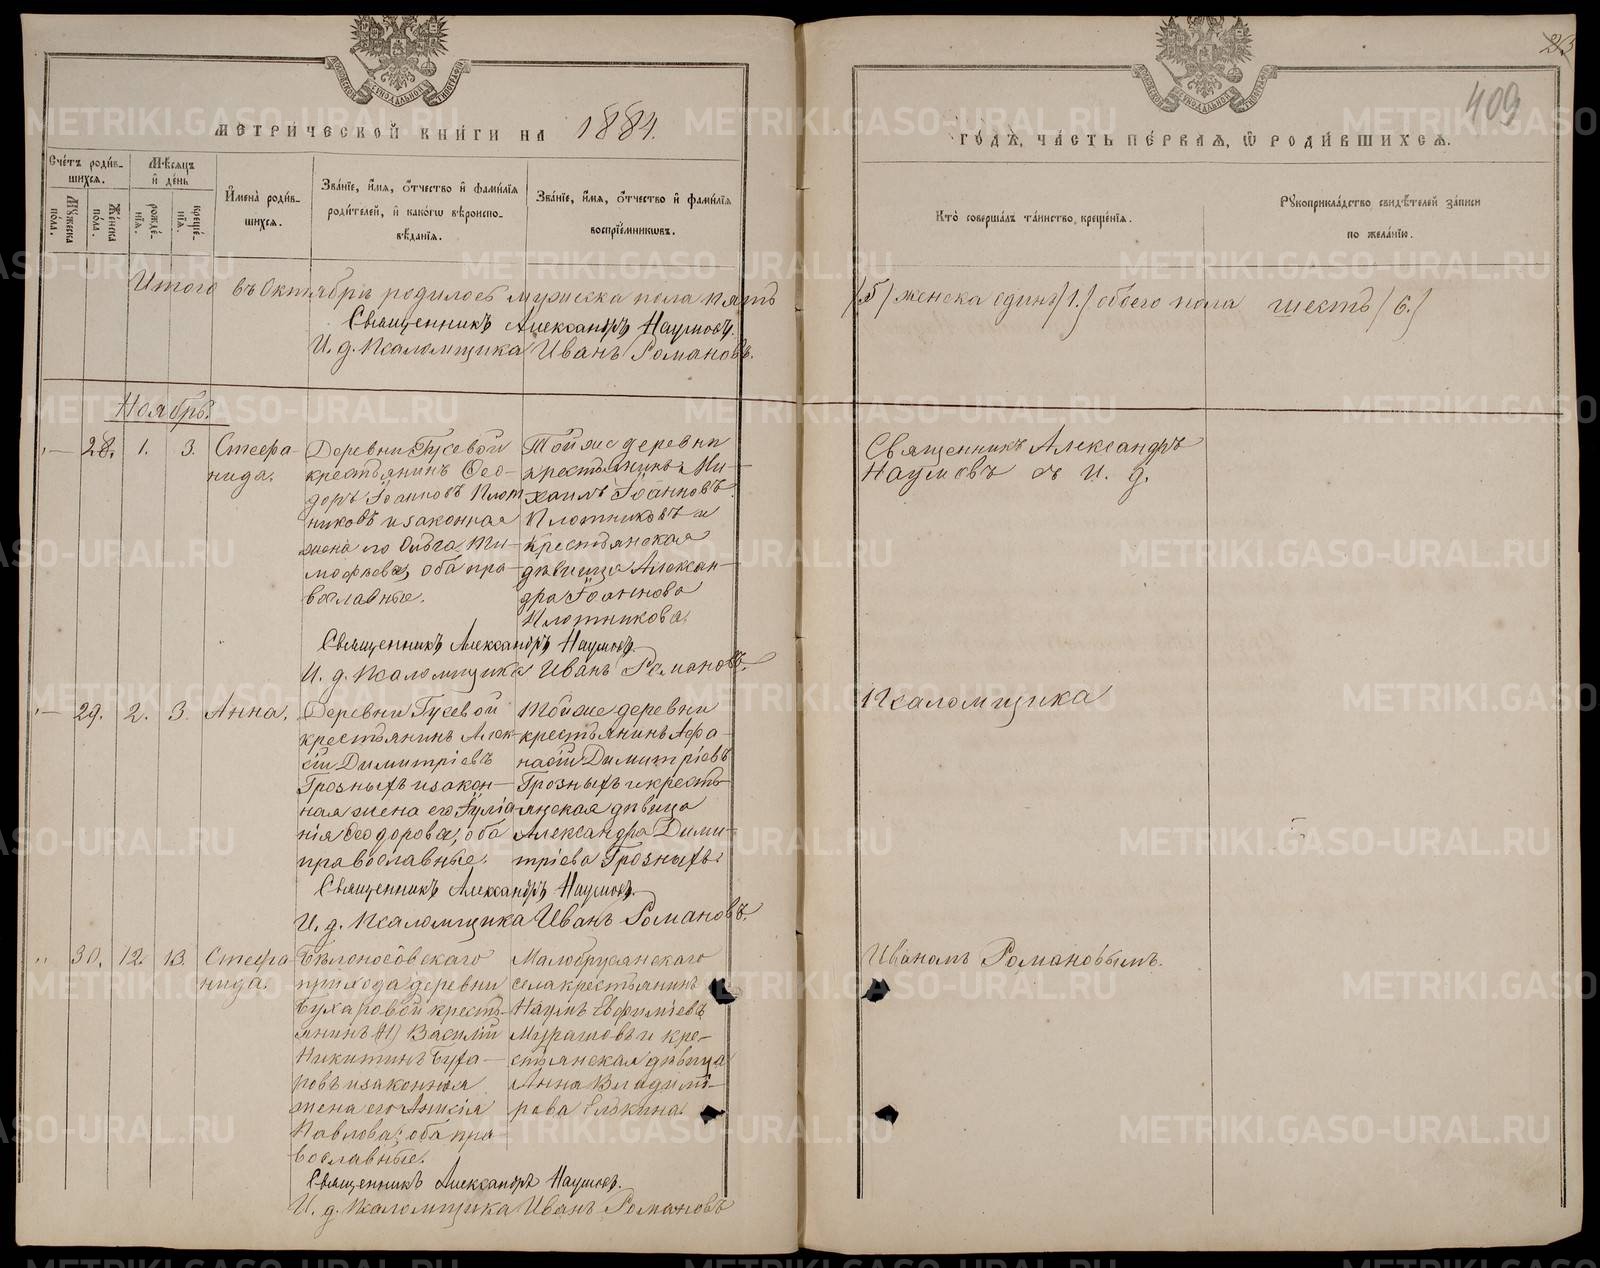 МЕТРИЧЕСКОЙ КНИГИ НА 1884.
Счетъ родив-
шихся.
Мѣсяцъ
и день
Мужеска
пола.
Женска
пола.
рожде-
нія.
креще-
нія.
Имена родив-
шихся.
Званіе, имя, отчество и фамилія
родителей, и какого вѣроиспо-
вѣданія.
Званіе, имя, отчество и фамилія
воспріемниковъ.
Итого въ Октябрѣ родилось мужеска пола пять
Священникъ Александръ Наумовъ.
И. д. Псаломщика Иванъ Романовъ.
Ноябрь.
28. 1. 3. Стефа-
нида.
Деревни Гусевой
крестьянинъ Ѳео-
доръ Іоанновъ Плот
никовъ и законная
жена его Ольга Ти-
мофѣева, оба пра-
вославные.
Той же деревни
крестьянинъ Ми-
хаилъ Іоанновъ
Плотниковъ и
крестьянская
дѣвица Алексан-
дра Іоаннова
Плотникова.
Священникъ Александръ Наумовъ.
И. д. Псаломщика Иванъ Романовъ.
29. 2. 3. Анна.
Деревни Гусевой
крестьянинъ Алек-
сій Димитріевъ
Грозныхъ и закон-
ная жена его Іуліа
нія Ѳеодорова, оба
православные.
Той же деревни
крестьянинъ Афа-
насій Димитріевъ
Грозныхъ и кресть-
янская дѣвица
Александра Дими-
тріева Грозныхъ.
Священникъ Александръ Наумовъ.
И. д. Псаломщика Иванъ Романовъ.
30. 12. 13. Стефа-
нида.
Бѣлоносовскаго
прихода деревни
Бухаровой кресть-
янинъ Василій
Никитинъ Буха-
ровъ и законная
жена его Анисія
Павлова, оба пра-
вославные.
Малобрусянскаго
села крестьянинъ
Наумъ Евфиміевъ
Мурашовъ и кре-
стьянская дѣвица
Анна Владими-
рова Елькина.
Священникъ Александръ Наумовъ.
И. д. Псаломщика Иванъ Романовъ
23
409
ГОДЪ, ЧАСТЬ ПЕРВАЯ, Ѿ РОДИВШИХСЯ.
Кто совершалъ таинство крещенія.
Рукоприкладство свидѣтелей записи
по желанію.
/5/ женска одинъ /1./ обоего пола шесть /6./
Священникъ Александръ
Наумовъ съ и. д.
Псаломщика
Иваномъ Романовымъ.
METRIKI.GASO-URAL.RU